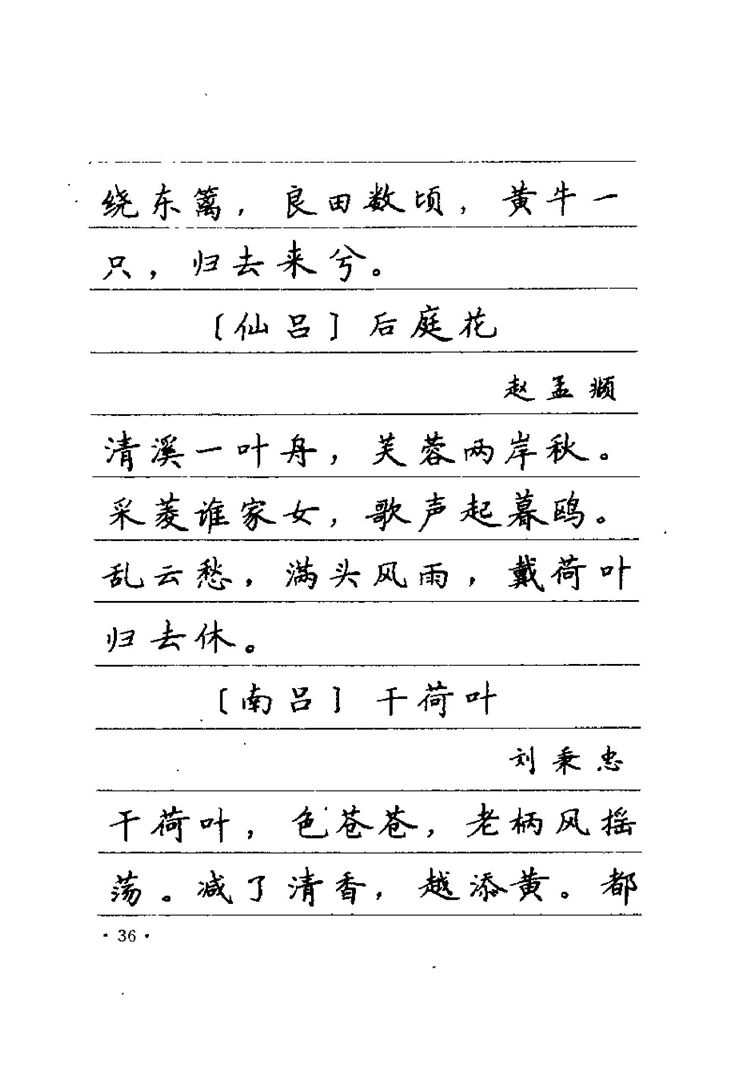 绕东篱，良田数顷，黄牛一
只，归去来兮。
〔仙吕〕后庭花
赵孟頫
清溪一叶舟，芙蓉两岸秋。
采菱谁家女，歌声起暮鸥。
乱云愁，满头风雨，戴荷叶
归去休。
〔南吕〕干荷叶
刘秉忠
干荷叶，色苍苍，老柄风摇
荡。减了清香，越添黄。都
· 36 ·